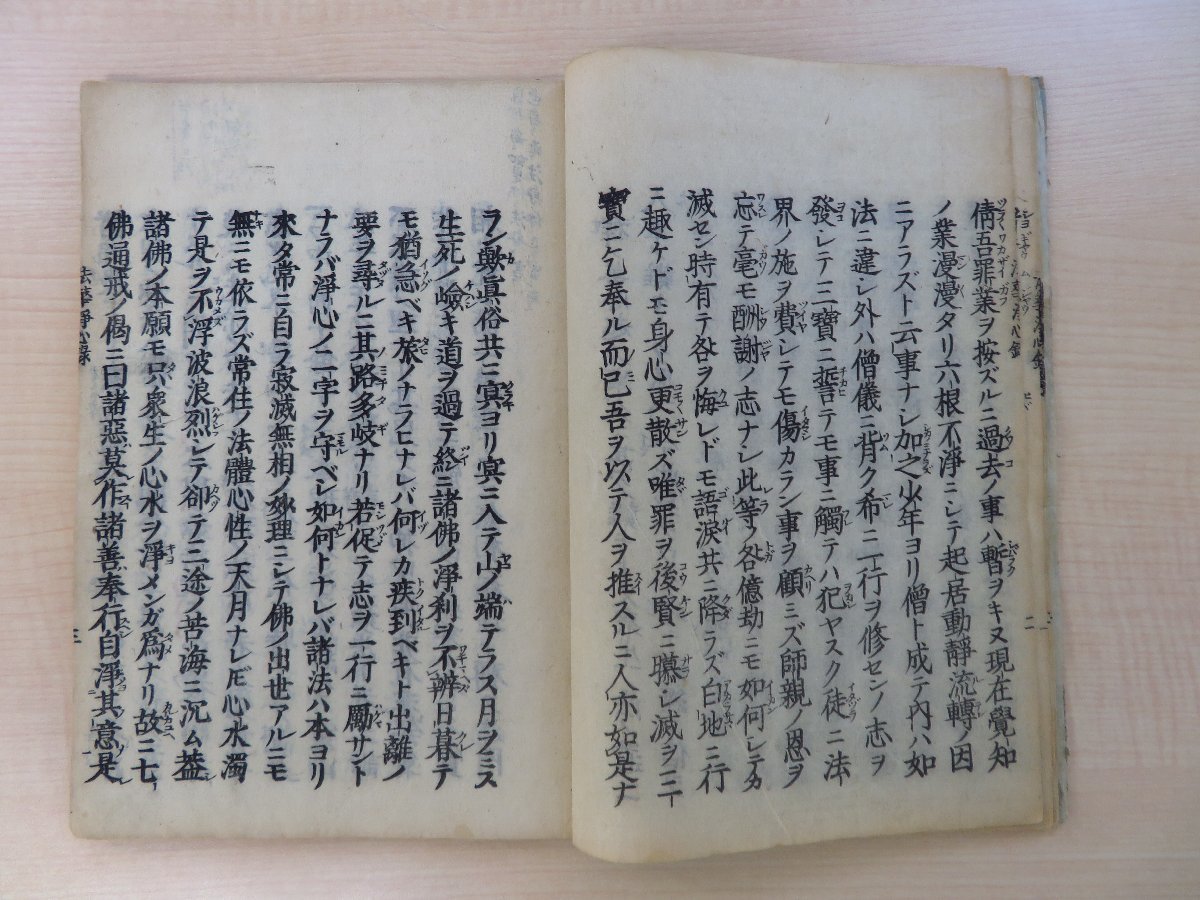 倩吾罪業ヲ按ズルニ過去ノ事ハ暫ヲキ又現在覺知
ノ業漫漫タリ六根不淨ニシテ起居動靜流轉ノ因
ニアラズト云事ナシ加之少年ヨリ僧ト成テ内ハ如
法ニ違シ外ハ僧儀ニ背ク希ニ一行ヲ修センノ志ヲ
發シテ三寶ニ誓テモ事ニ觸テハ犯ヤスク徒ニ法
界ノ施ヲ費シテモ傷カラン事ヲ顧ミズ師親ノ恩ヲ
忘テ毫モ酬謝ノ志ナシ此等ノ咎億劫ニモ如何シテカ
滅セン時有テ咎ヲ悔レドモ語淚共ニ降ラズ白地ニ行
ニ趣ケドモ身心更散ズ唯罪ヲ後賢ニ曝シ滅ヲ三
寶ニ乞奉ル而已吾ヲ以テ人ヲ推スルニ人亦如是ナ
ラン歟眞俗共ニ冥ヨリ冥ニ入テ山ノ端テラス月ヲミス
生死ノ嶮キ道ヲ過テ終ニ諸佛ノ淨刹ヲ不辨日暮テ
モ猶急ベキ旅ノナラヒナレバ何レカ疾到ベキト出離ノ
要ヲ尋ルニ其路多岐ナリ若促テ志ヲ一行ニ勵サント
ナラバ淨心ノ二字ヲ守ベシ如何トナレバ諸法ハ本ヨリ
來タ常ニ自ラ寂滅無相ノ妙理ニシテ佛ノ出世アルニモ
無ニモ依ラズ常住ノ法體心性ノ天月ナレ𪜈心水濁
テ是ヲ不浮波浪烈シテ卻テ三途ノ苦海ニ沉ム蓋
諸佛ノ本願モ只衆生ノ心水ヲ淨メンガ爲ナリ故ニ七
佛通戒ノ偈ニ曰諸惡莫作諸善奉行自淨其意是
法華淨心録
三